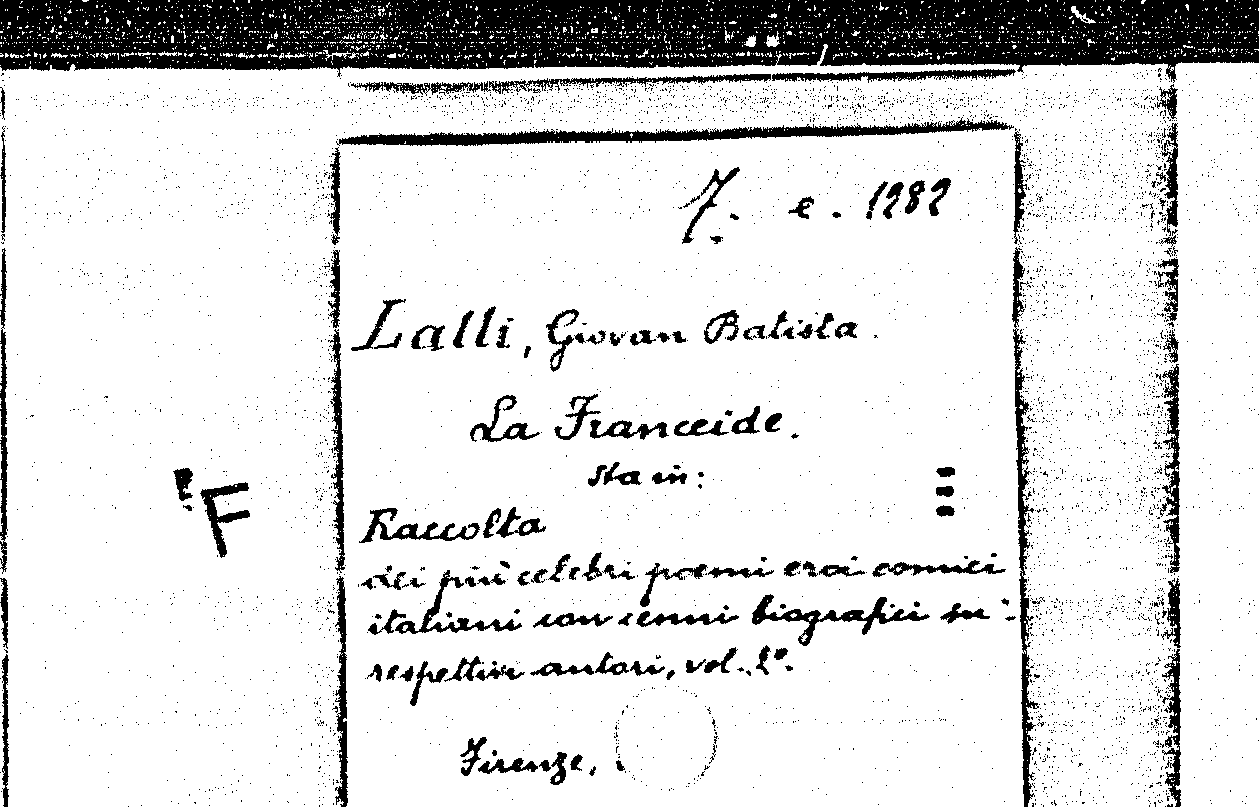 7. e. 1282
Lalli, Giovan Batista.
La Franceide.
sta in:
F
Raccolta
dei più celebri poemi eroi-comici
italiani con cenni biografici su:
respettivi autori, vol. 2°.
Firenze,